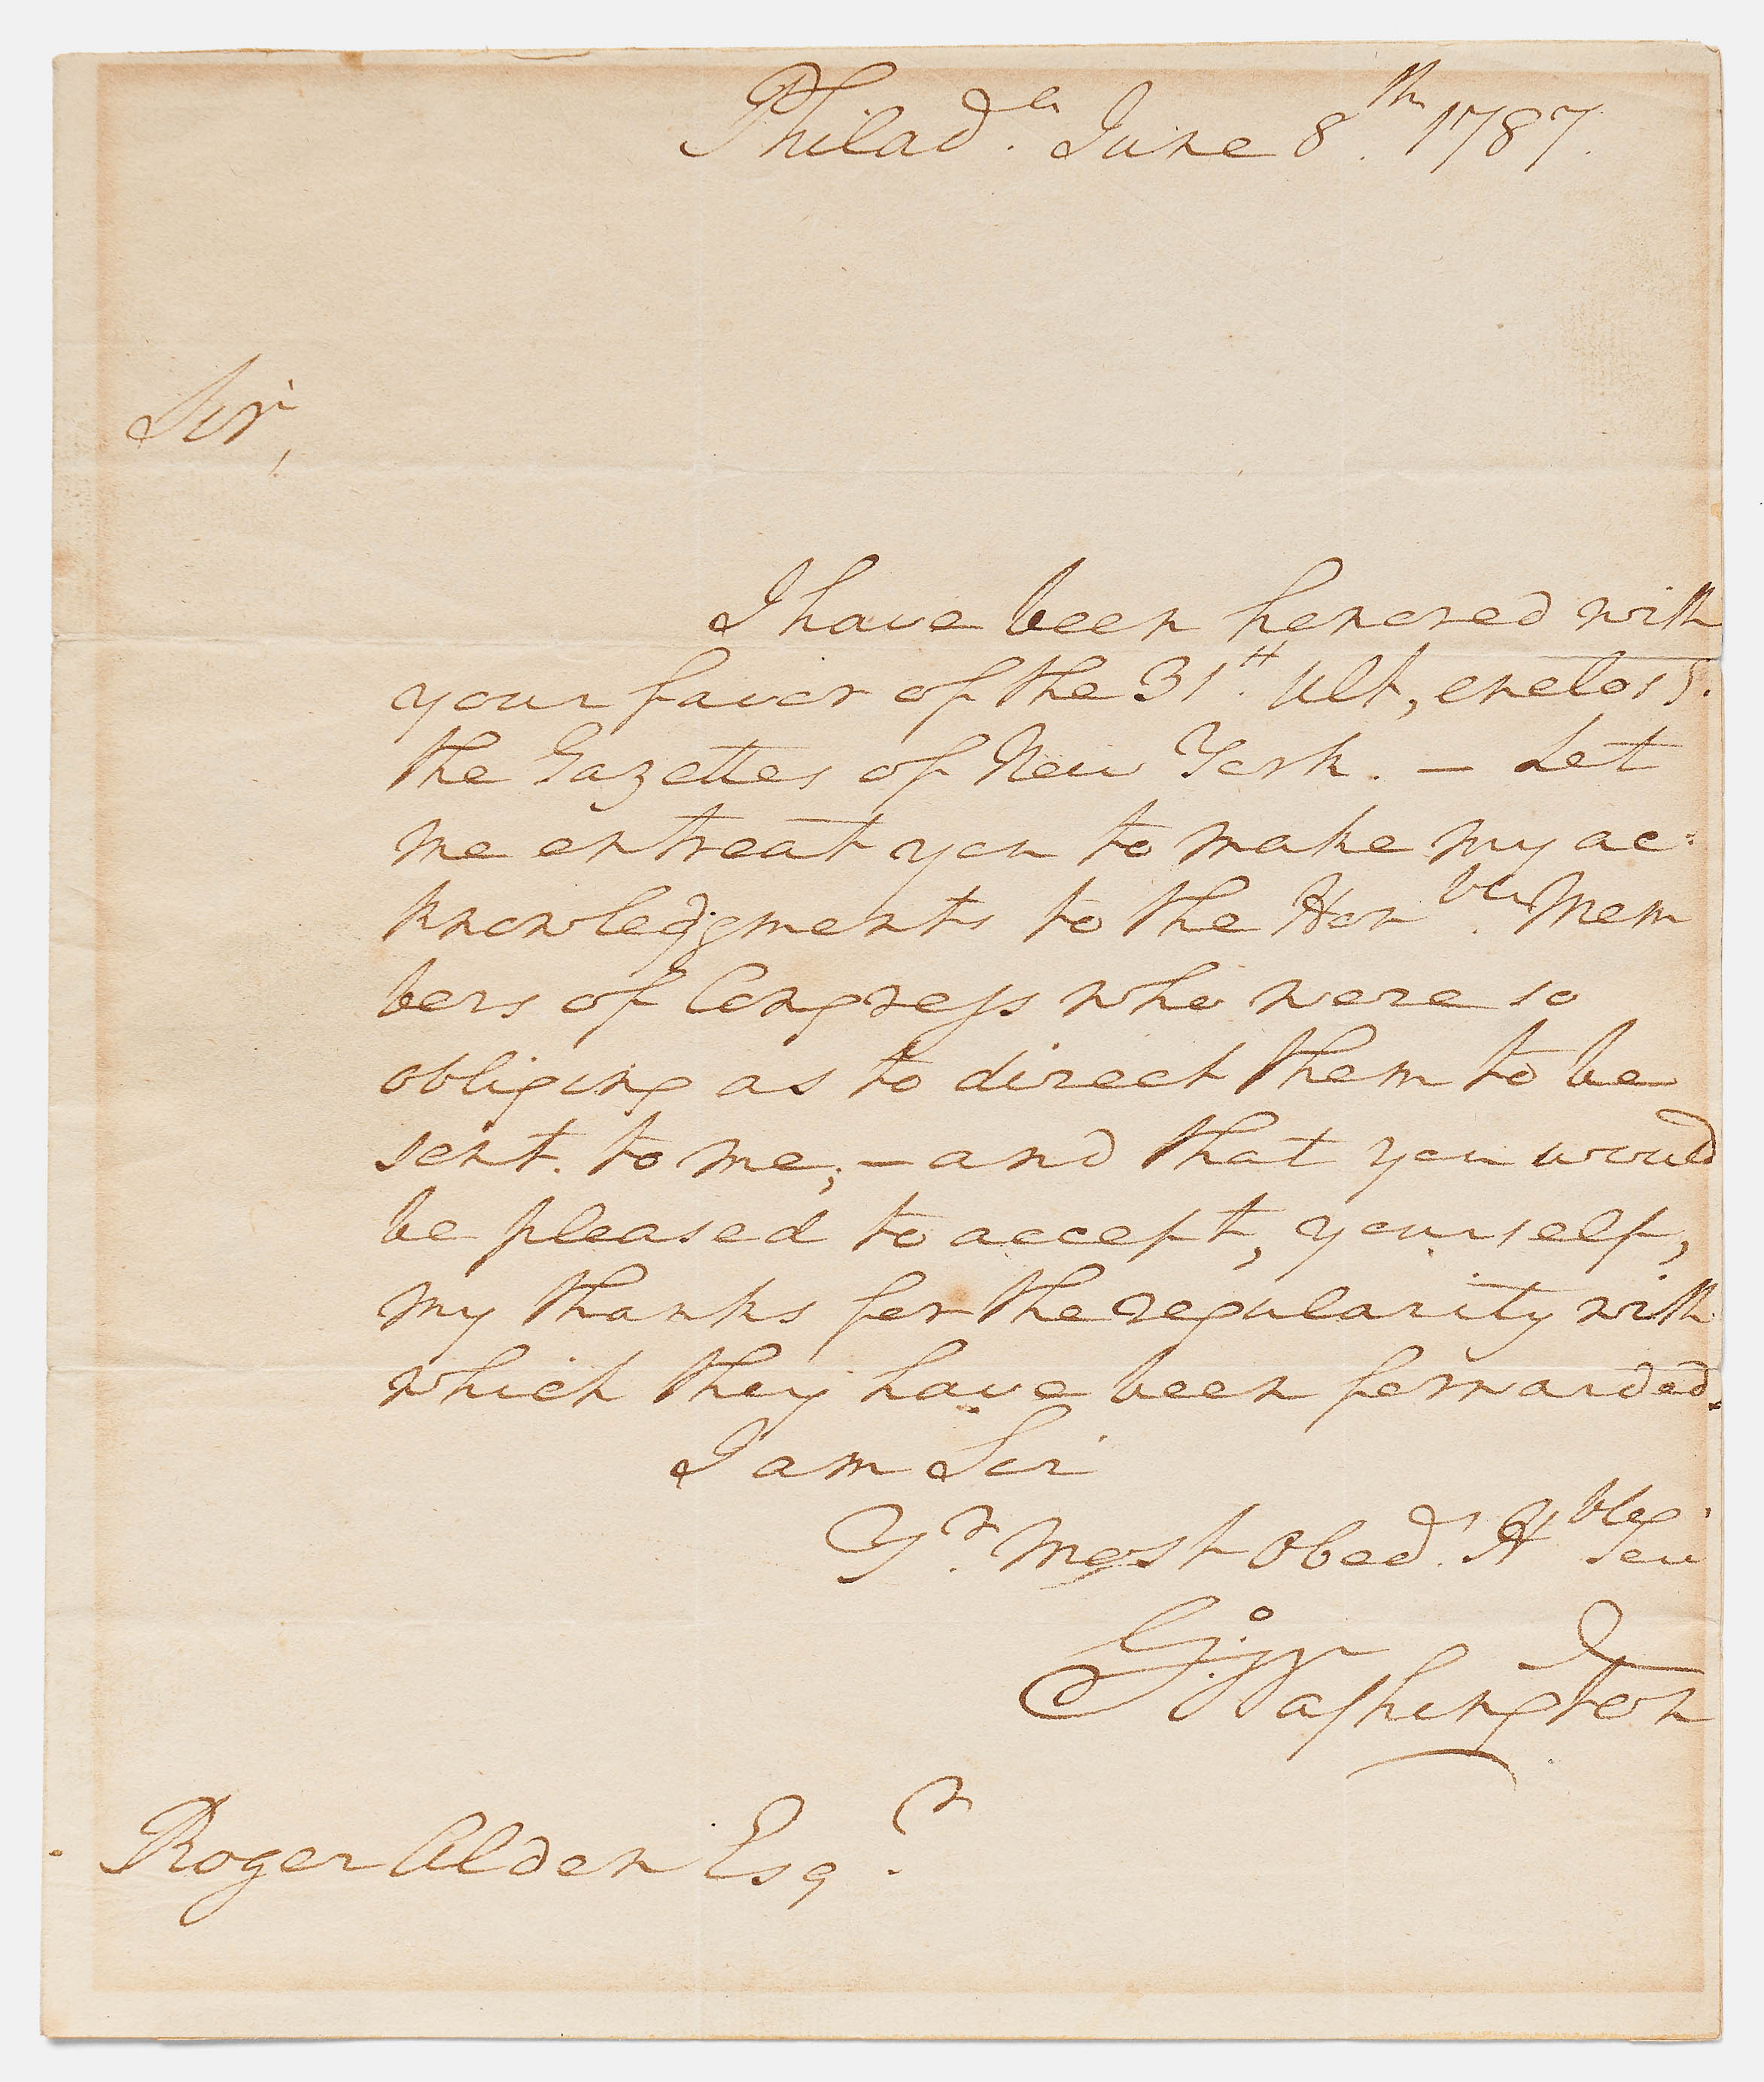 Philad.ª June 8.th 1787.
Sir,
I have been honored with
your favor of the 31.st Ult, enclosg.
the Gazettes of New York. — Let
me entreat you to make my ac=
knowledgments to the Hon.ble Mem
bers of Congress who were so
obliging as to direct them to be
sent to me; — and that you would
be pleased to accept, yourself,
my thanks for the regularity with
which they have been forwarded.
I am Sir
Y.r Most Obed.t Hble Ser
G.o Washington
Roger Alden Esq.r